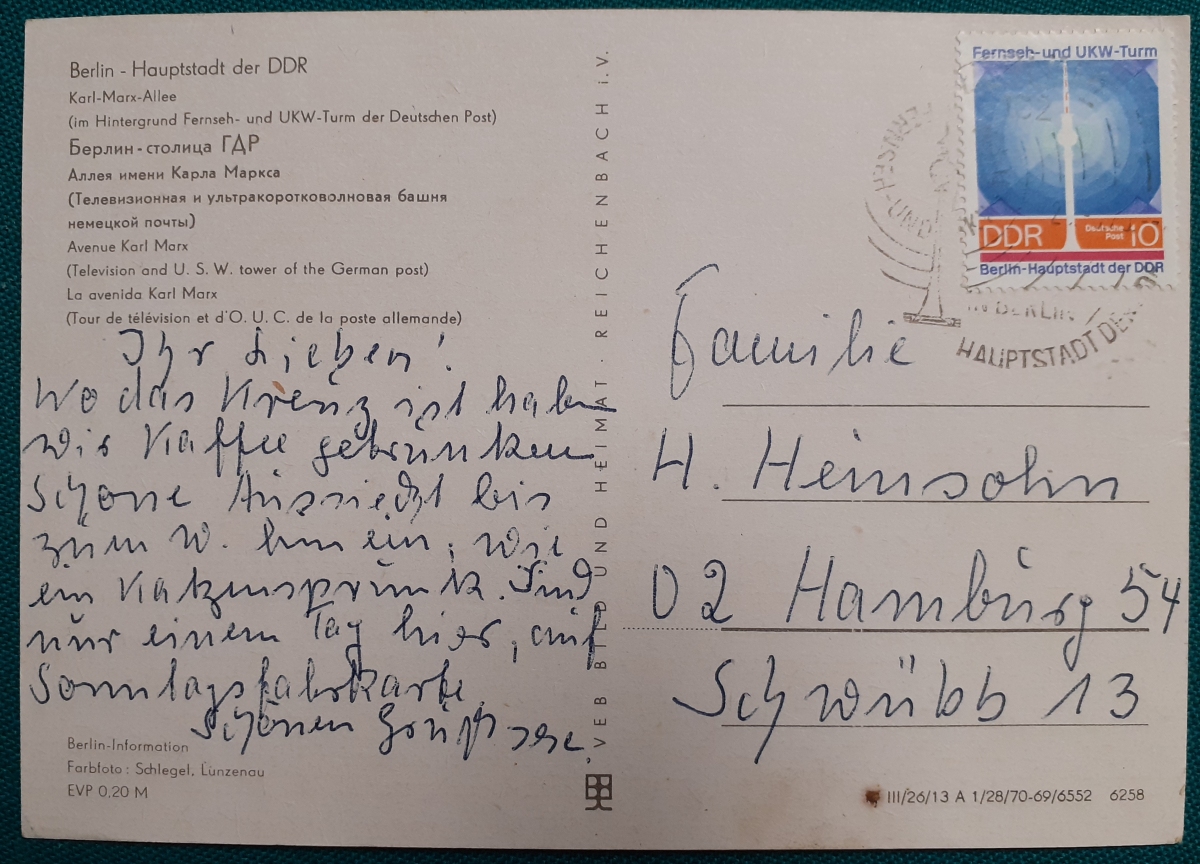 Berlin - Hauptstadt der DDR
Karl-Marx-Allee
(im Hintergrund Fernseh- und UKW-Turm der Deutschen Post)
Берлин - столица ГДР
Аллея имени Карла Маркса
(Телевизионная и ультракоротковолновая башня
немецкой почты)
Avenue Karl Marx
(Television and U. S. W. tower of the German post)
La avenida Karl Marx
(Tour de télévision et d'O. U. C. de la poste allemande)
Ihr Lieben!
Wo das Kreuz ist haben
wir Kaffee getrunken
Schöne Aussicht bis
zum W. hinein, wie
ein Katzensprunk. Sind
nur einen Tag hier, auf
Sonntagsfahrkarte.
Schönen Gruß
Berlin-Information
Farbfoto: Schlegel, Lunzenau
EVP 0,20 M
VEB BILD UND HEIMAT · REICHENBACH i. V.
Fernseh- und UKW-Turm
DDR
Deutsche
Post
10
Berlin-Hauptstadt der DDR
FERNSEH-UND
IN BERLIN /
HAUPTSTADT DER
Familie
H. Heinsohn
02 Hamburg 54
Schwübb 13
III/26/13 A 1/28/70-69/6552 6258